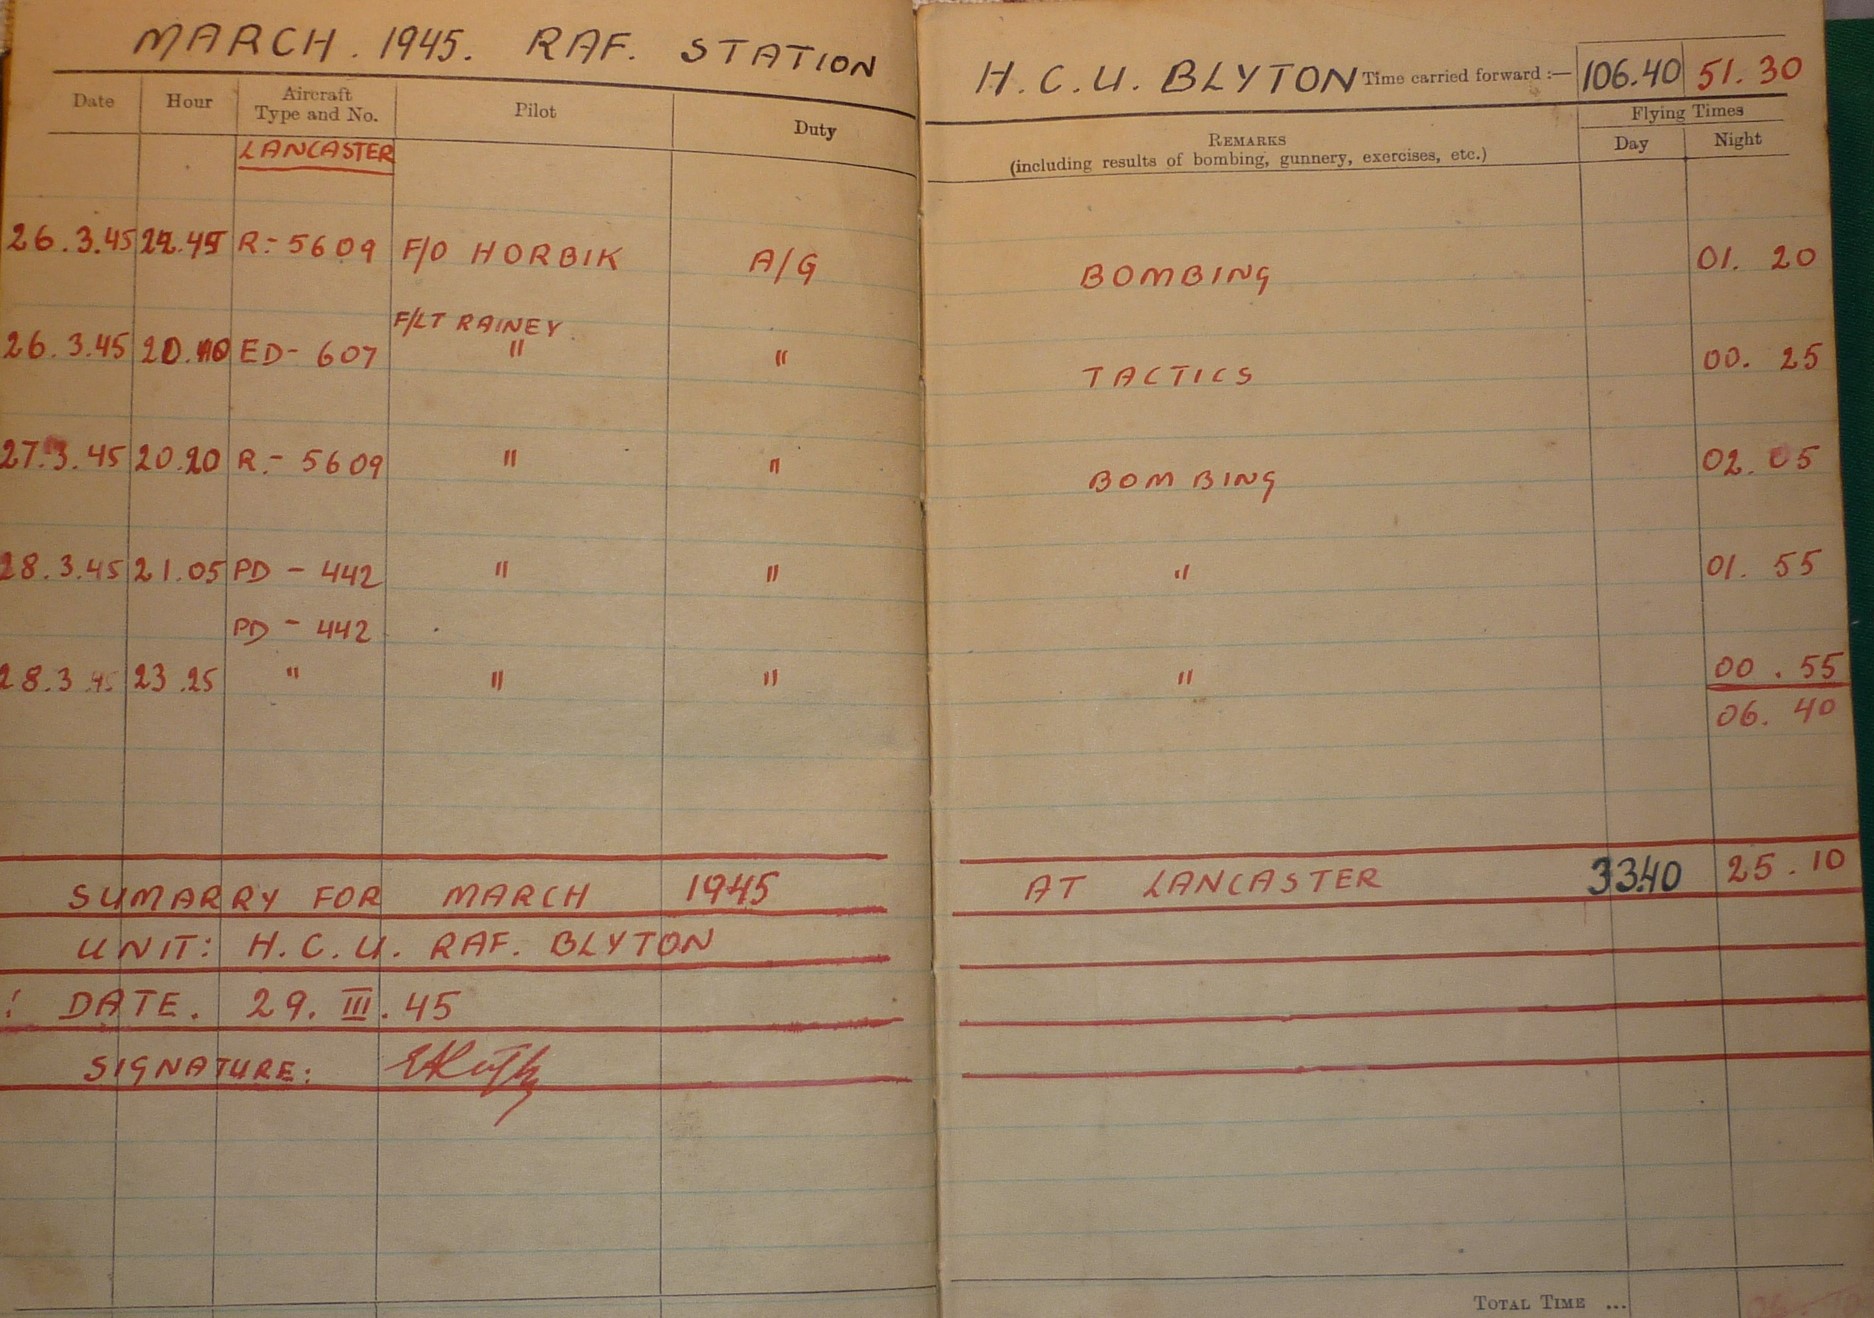 MARCH. 1945. RAF. STATION H.C.U. BLYTON Time carried forward :— 106.40 51.30
Flying Times
Date Hour Aircraft Type and No. Pilot Duty REMARKS (including results of bombing, gunnery, exercises, etc.) Day Night
LANCASTER
26.3.45 22.45 R.- 5609 F/O HORBIK A/G BOMBING 01. 20
F/LT RAINEY
26.3.45 20.40 ED- 607 " " TACTICS 00. 25
27.3.45 20.20 R.- 5609 " " BOMBING 02. 05
28.3.45 21.05 PD - 442 " " " 01. 55
PD - 442
28.3.45 23.25 " " " " 00 . 55
06. 40
SUMARRY FOR MARCH 1945 AT LANCASTER 33.40 25.10
UNIT: H.C.U. RAF. BLYTON
DATE. 29. III. 45
SIGNATURE:
TOTAL TIME ...